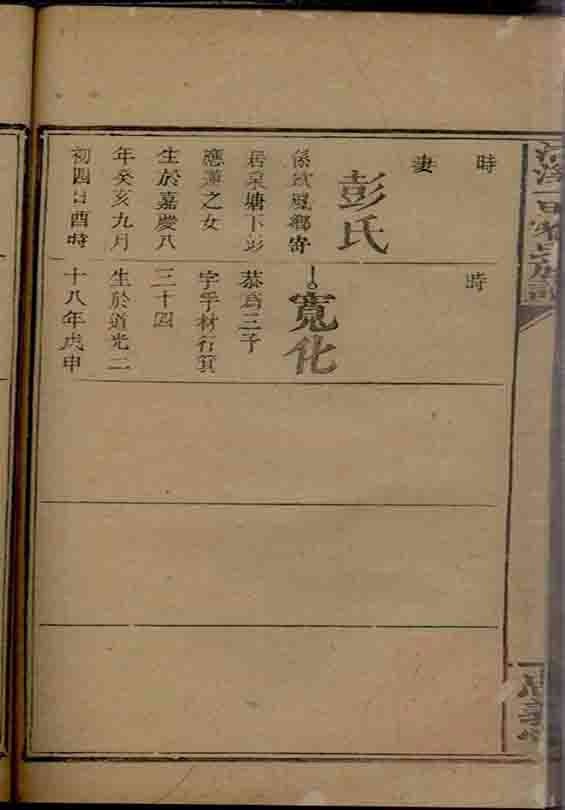 時
妻
彭氏
係欽風鄉寄
居泉塘下彭
應蕭之女
生於嘉慶八
年癸亥九月
初四日酉時
時
寬化
恭爲三子
字孚材行箕
三十四
生於道光二
十八年戊申